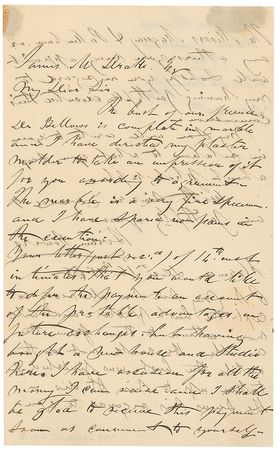 James M Drake Esq
My Dear Sir
The bust of our friend
Dr Bellows is complete in marble
and I have directed my plaster
molder to take an impression of it
for you according to agreement.
The marble is a very fine specimen
and I have spared no pains in
the execution.
Your letter just rec.d of 14th inst
intimates that you would like
to defer the payment on account
of the probable advantages in
future exchanges but having
bought a new house and studio
here I have use for all the
money I can raise and I shall
be glad to receive this payment
soon as convenient to yourself.